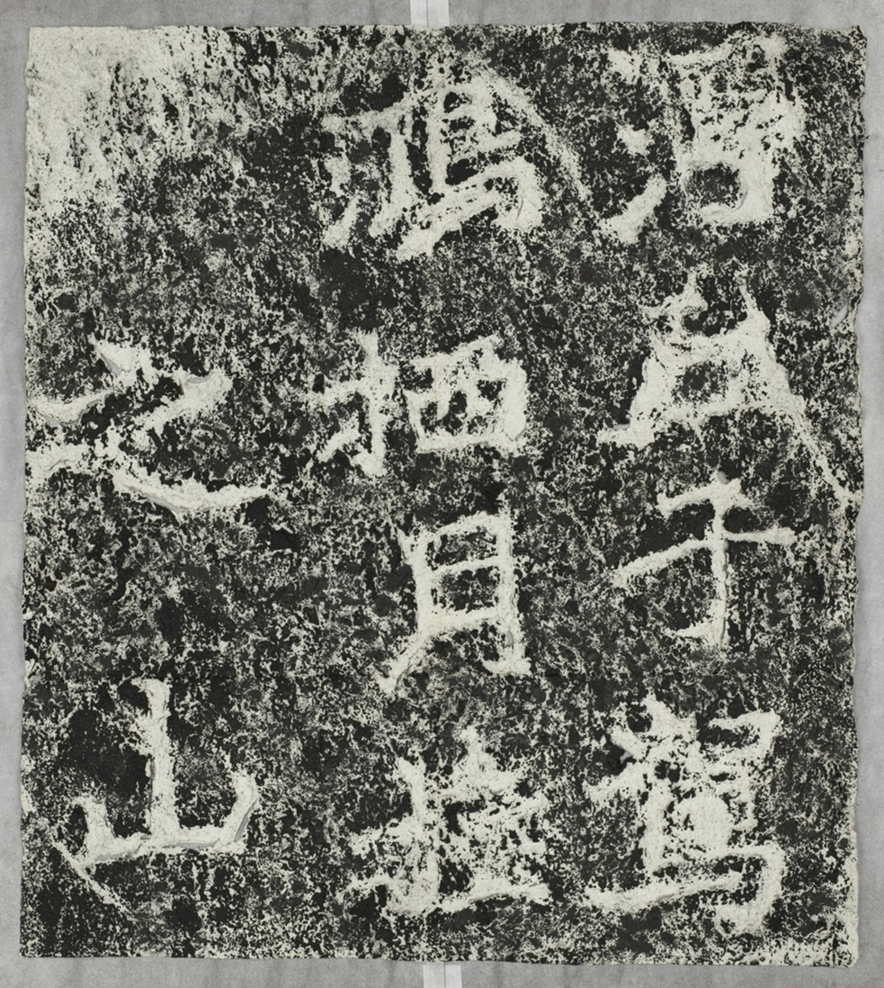 浮丘子駕
鴻栖月桂
之山